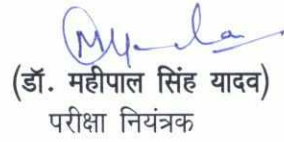 (डॉ. महीपाल सिंह यादव)
परीक्षा नियंत्रक